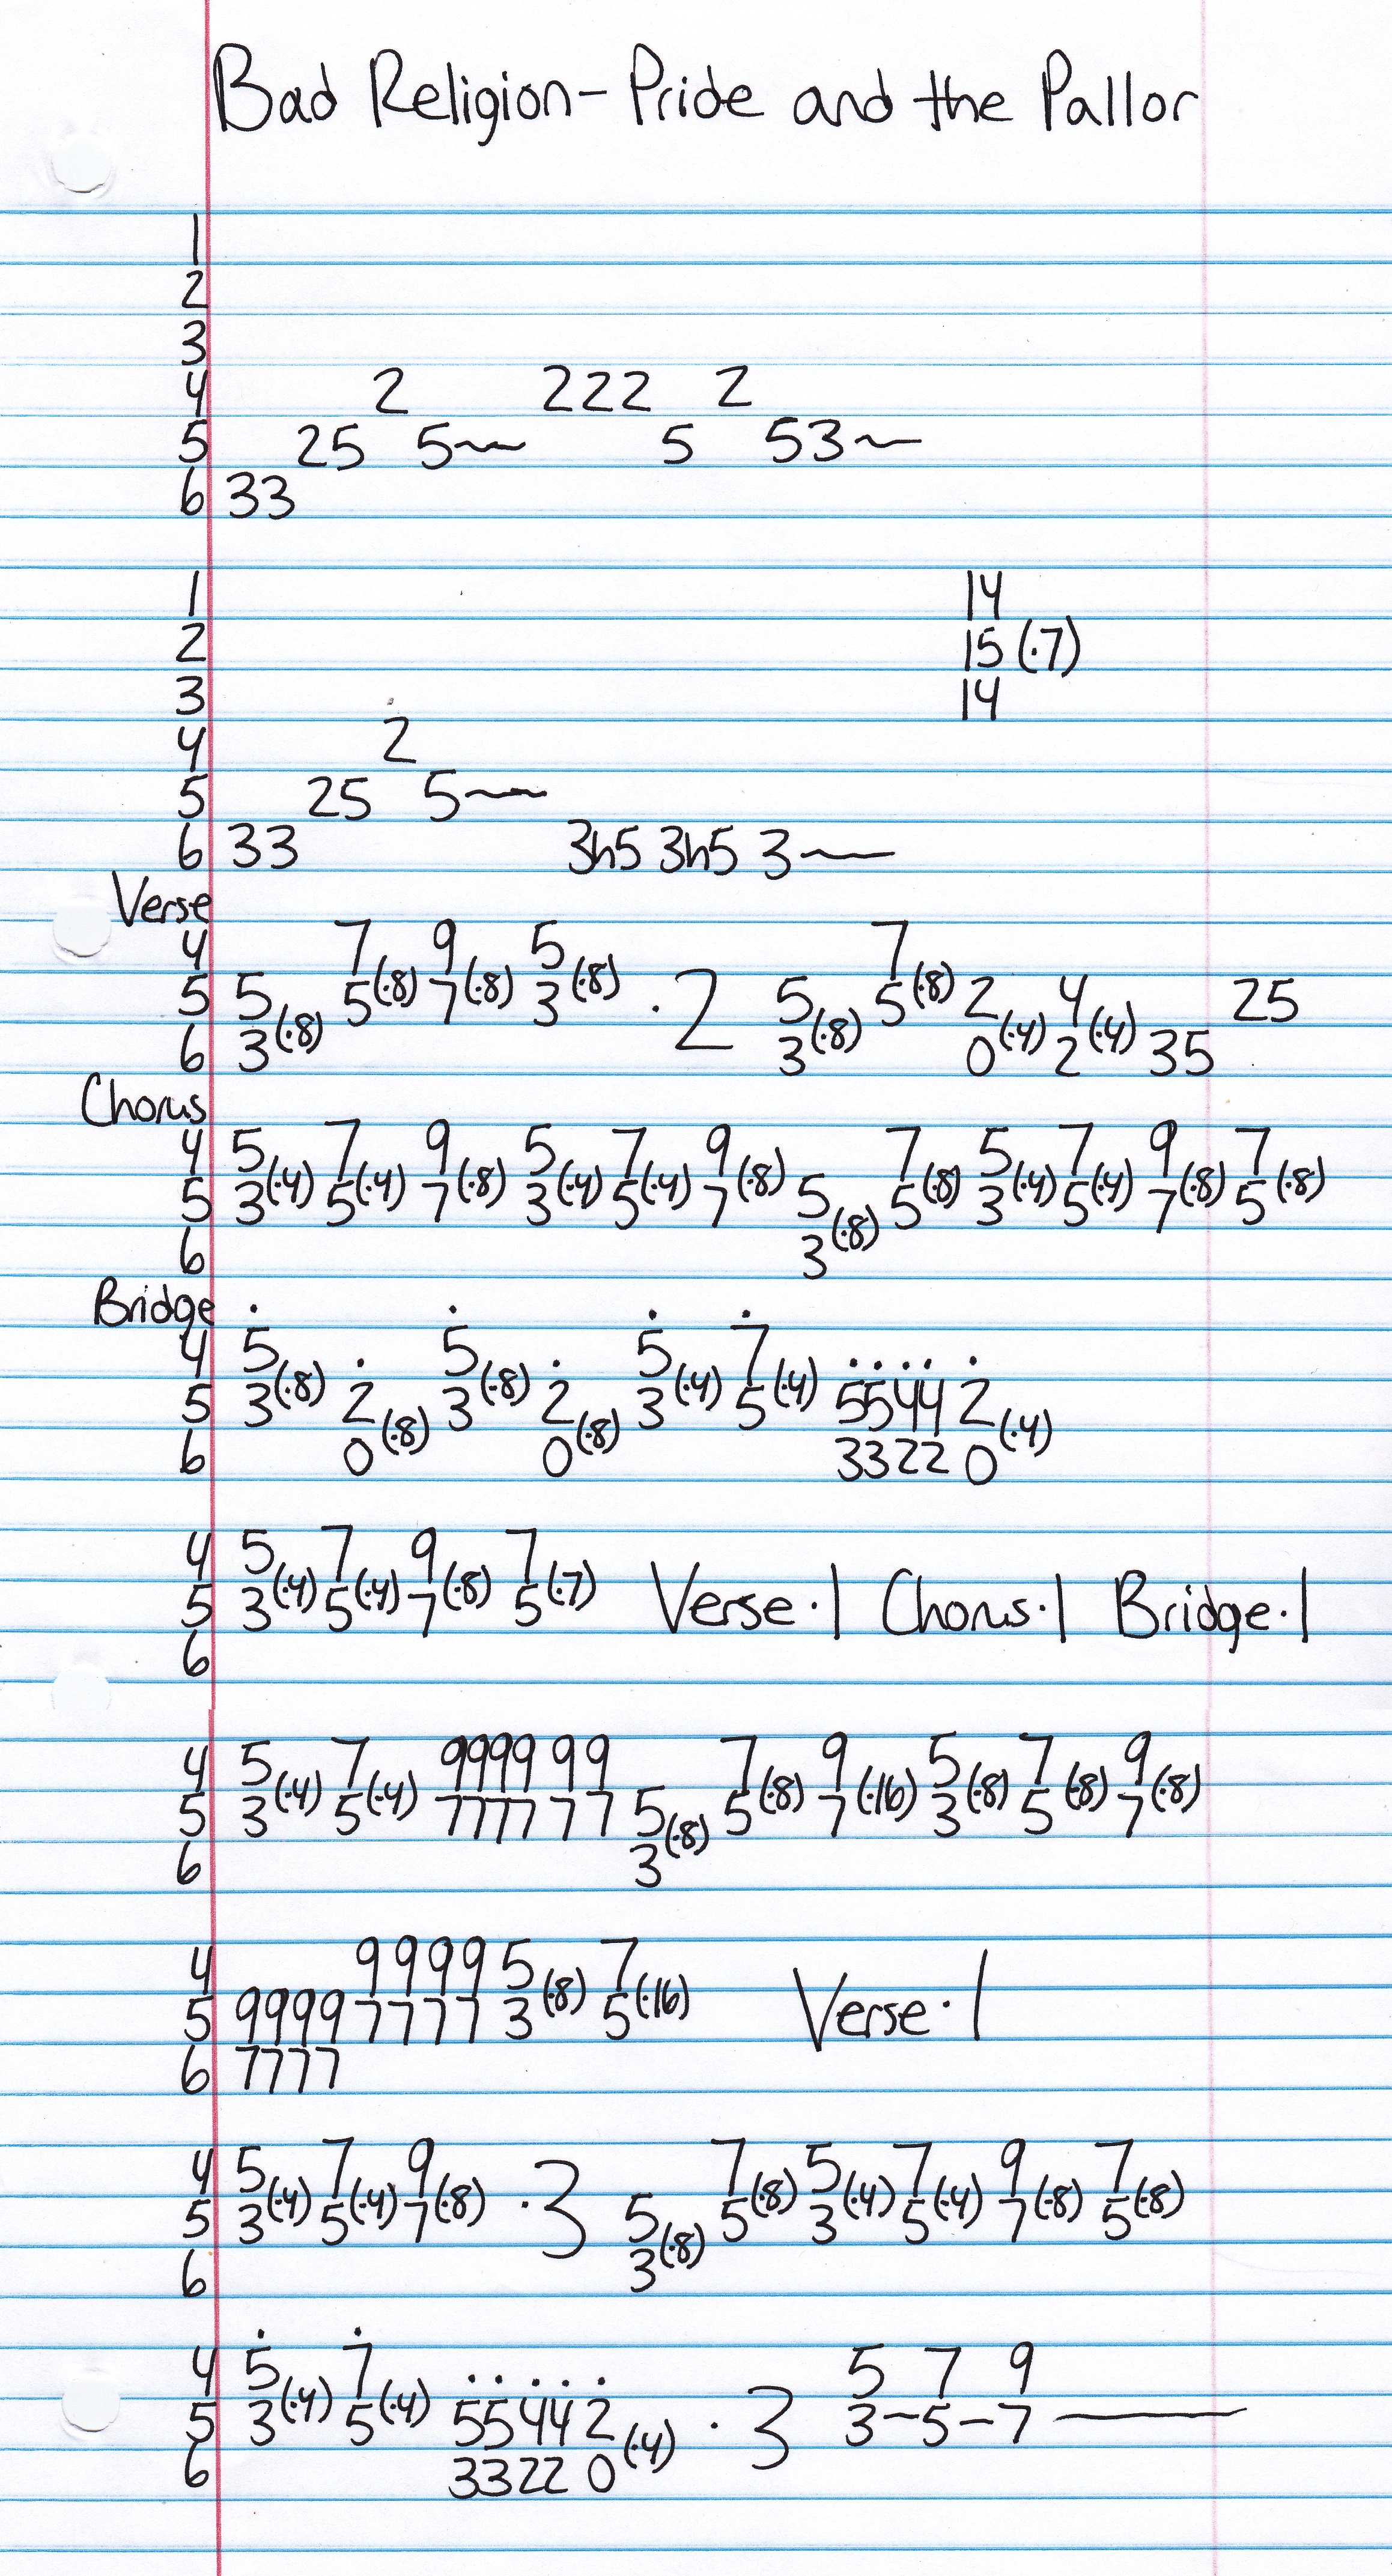 Bad Religion - Pride and the Pallor
1
2
3
4 2 222 2
5 25 5~~ 5 53~
6 33
1 14
2 15 (·7)
3 14
4 2
5 25 5~~
6 33 3h5 3h5 3~~
Verse
4 7 9 5 7
5 5 5(·8) 7(·8) 3(·8) ·2 5 5(·8) 2 4 25
6 3(·8) 3(·8) 0(·4) 2(·4) 35
Chorus
4 5 7 9 5 7 9 7 5 7 9 7
5 3(·4) 5(·4) 7(·8) 3(·4) 5(·4) 7(·8) 5 5(·8) 3(·4) 5(·4) 7(·8) 5(·8)
6 3(·8)
Bridge
4 5 5 5 7
5 3(·8) 2 3(·8) 2 3(·4) 5(·4) 5544 2
6 0(·8) 0(·8) 3322 0(·4)
4 5 7 9 7
5 3(·4) 5(·4) 7(·8) 5(·7) Verse·1 Chorus·1 Bridge·1
6
4 5 7 9999 99 7 9 5 7 9
5 3(·4) 5(·4) 7777 77 5 5(·8) 7(·16) 3(·8) 5(·8) 7(·8)
6 3(·8)
4 9999 5 7
5 9999 7777 3(·8) 5(·16) Verse·1
6 7777
4 5 7 9 7 5 7 9 7
5 3(·4) 5(·4) 7(·8) ·3 5 5(·8) 3(·4) 5(·4) 7(·8) 5(·8)
6 3(·8)
4 5 7 5 7 9
5 3(·4) 5(·4) 5544 2 ·3 3-5-7——
6 3322 0(·4)